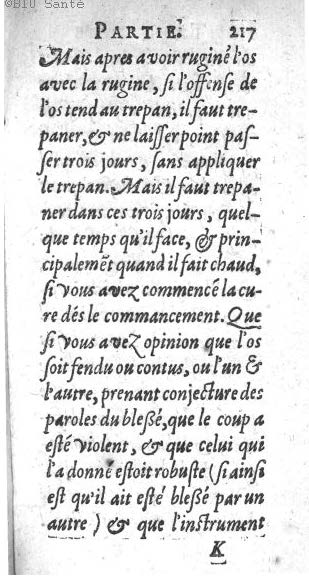 ©BIU Santé
PARTIE. 217
Mais apres avoir ruginé l'os
avec la rugine, si l'offense de
l'os tend au trepan, il faut tre-
paner, & ne laisser point pas-
ser trois jours, sans appliquer
le trepan. Mais il faut trepa-
ner dans ces trois jours, quel-
que temps qu'il face, & prin-
cipalemēt quand il fait chaud,
si vous avez commencé la cu-
re dés le commancement. Que
si vous avez opinion que l'os
soit fendu ou contus, ou l'un &
l'autre, prenant conjecture des
paroles du blessé, que le coup a
esté violent, & que celui qui
l'a donné estoit robuste (si ainsi
est qu'il ait esté blessé par un
autre) & que l'instrument
K